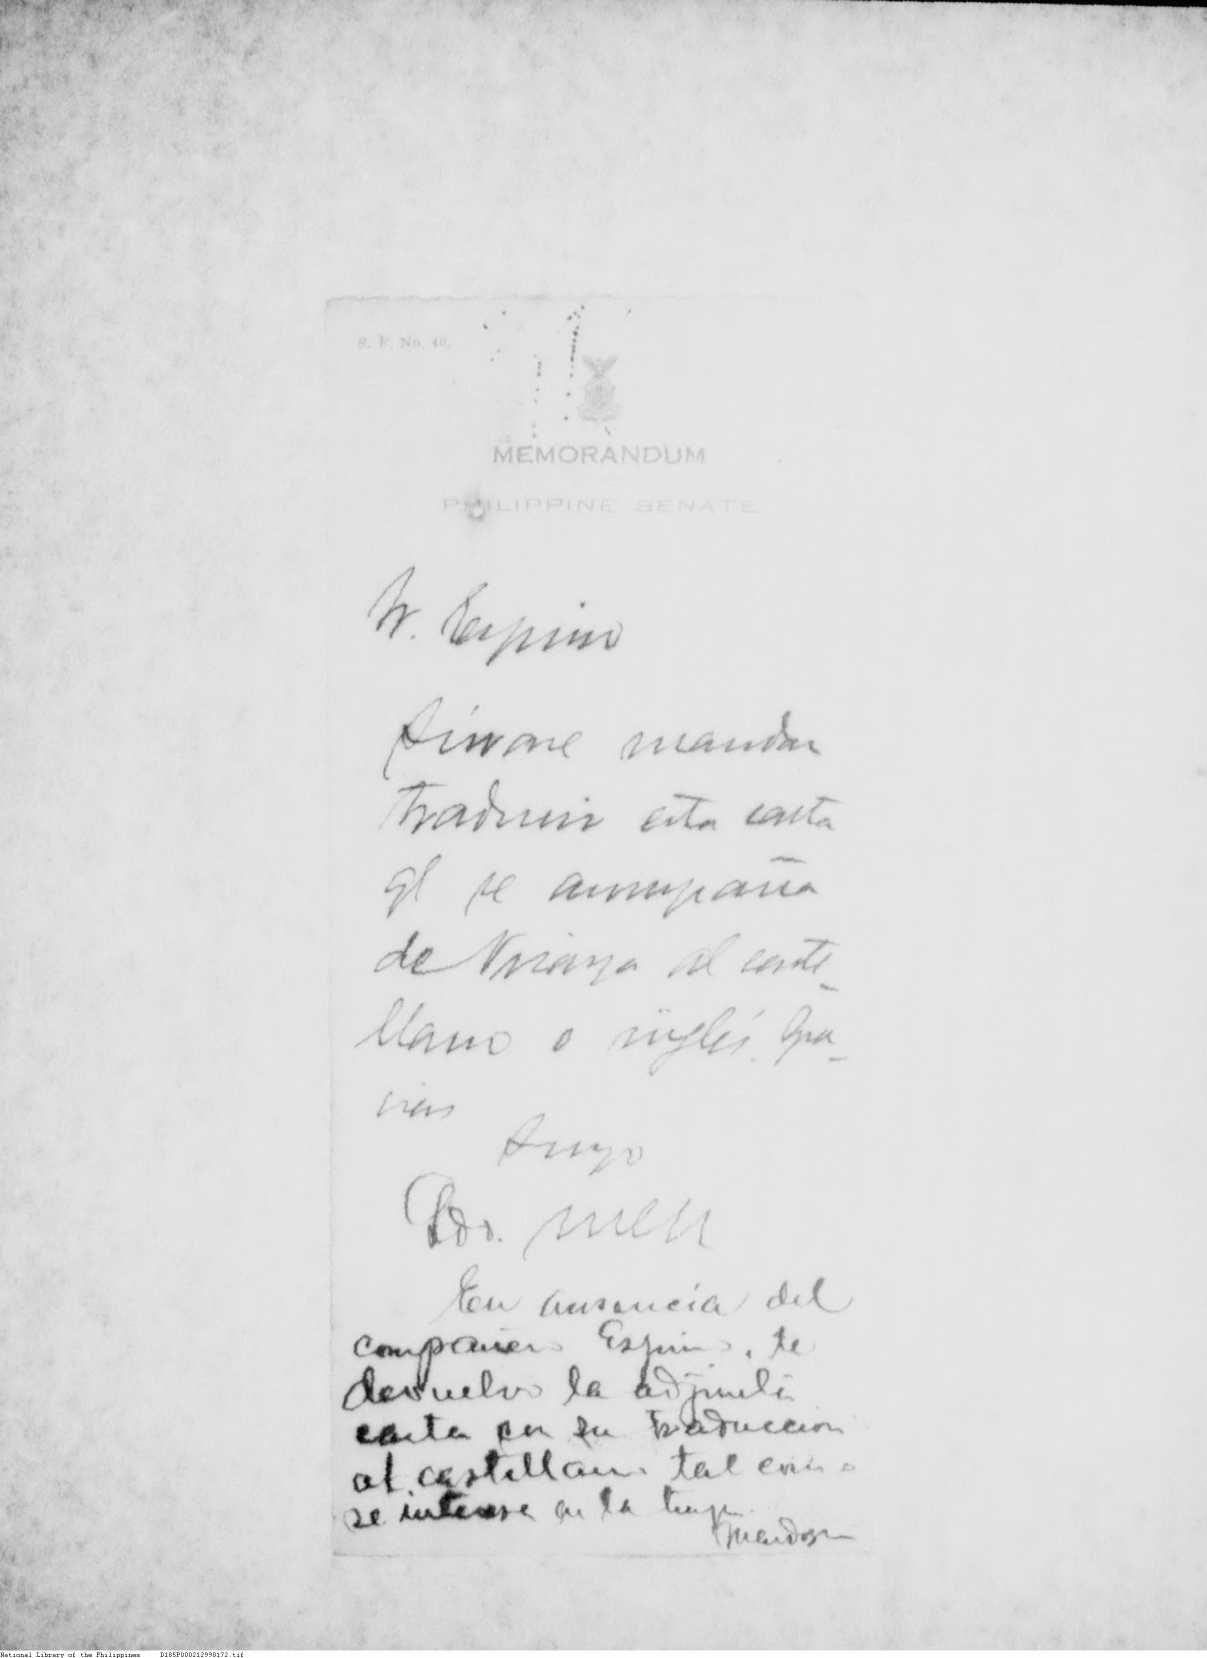 S. F. No. 40.
MEMORANDUM
PHILIPPINE SENATE
Sr. Espino
Sírvase mandar
traducir esta carta
ql se acompaña
de Visaya al caste-
llano o inglés. Gra-
cias
Suyo
Pdo.
En ausencia del
compañero Espino, te
devuelvo la adjunta
carta con su traduccion
al castellano tal como
se interesa en la
Mendoza
National Library of the Philippines D185P000212998172.tif